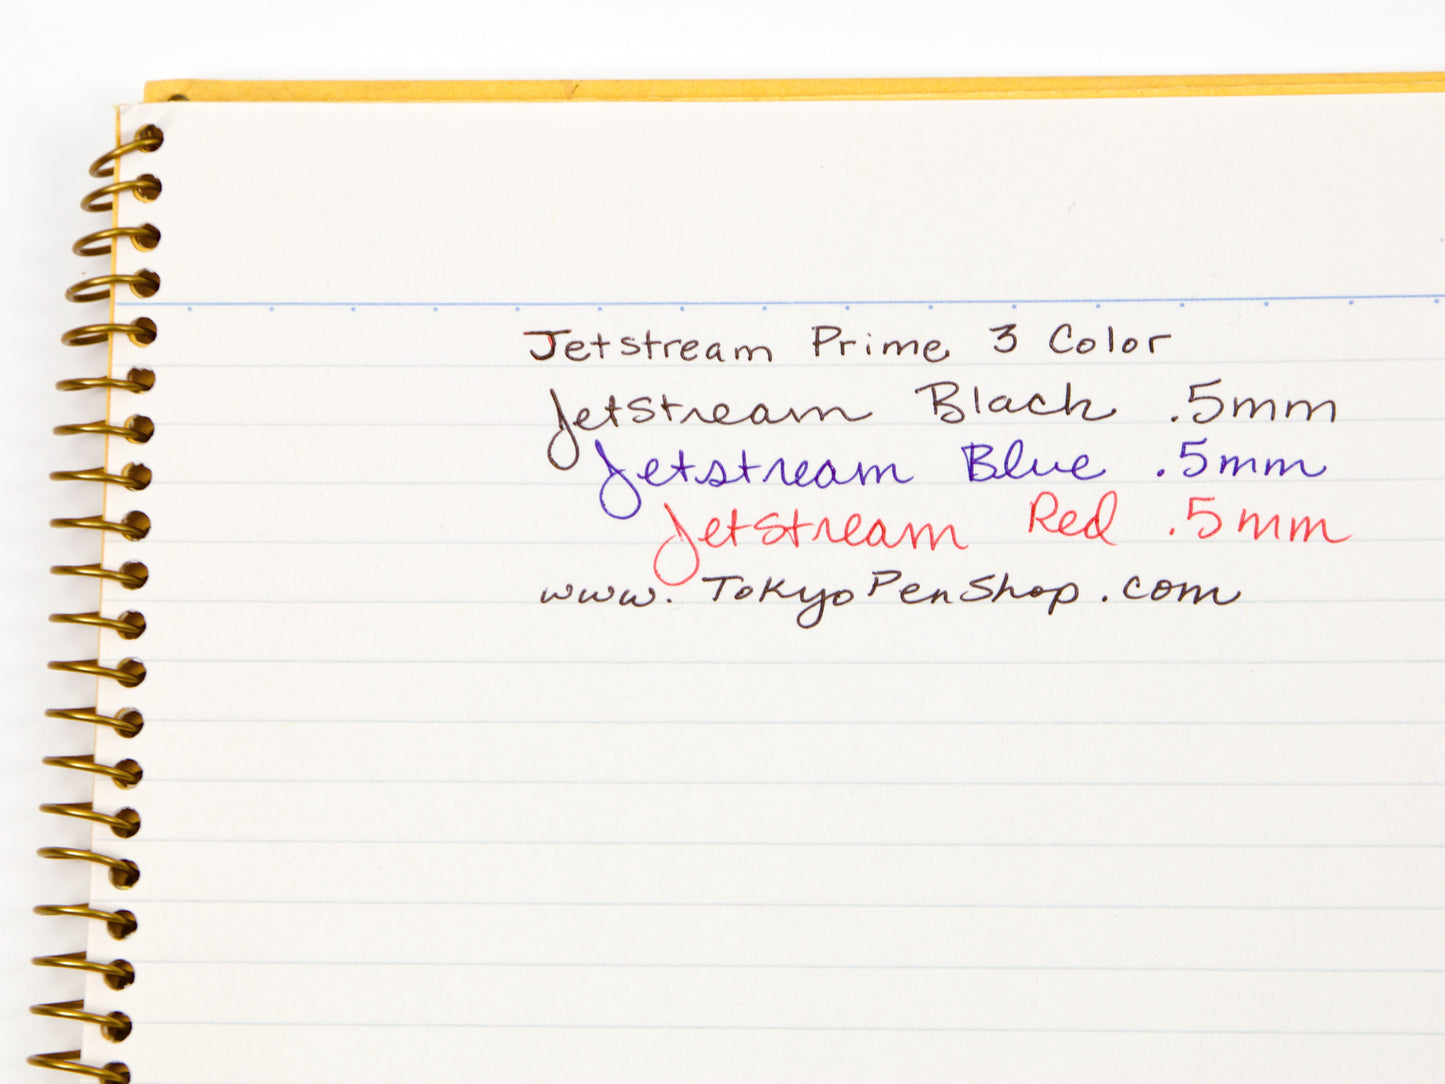 Jetstream Prime 3 Color
Jetstream Black .5mm
Jetstream Blue .5mm
Jetstream Red .5mm
www.TokyoPenShop.com